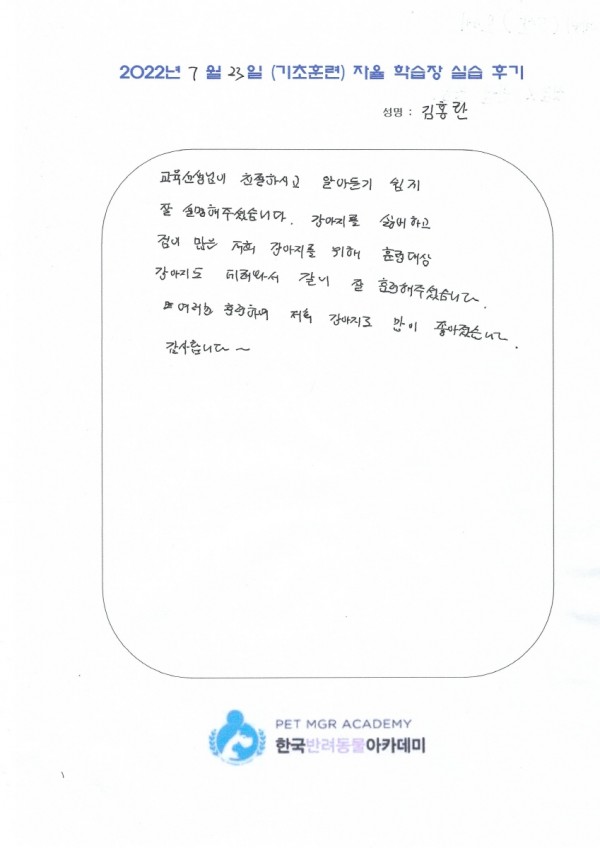 2022년 7월 23일 (기초훈련) 자율 학습장 실습 후기
성명 : 김홍란
교육선생님이 친절하시고 알아듣기 쉽지
잘 설명해주셨습니다. 강아지를 싫어하고
겁이 많은 저희 강아지를 위해 훈련대상
강아지도 데려와서 같이 잘 훈련해주셨습니다.
여러번 훈련하며 저희 강아지도 많이 좋아졌습니다.
감사합니다~
PET MGR ACADEMY
한국반려동물아카데미